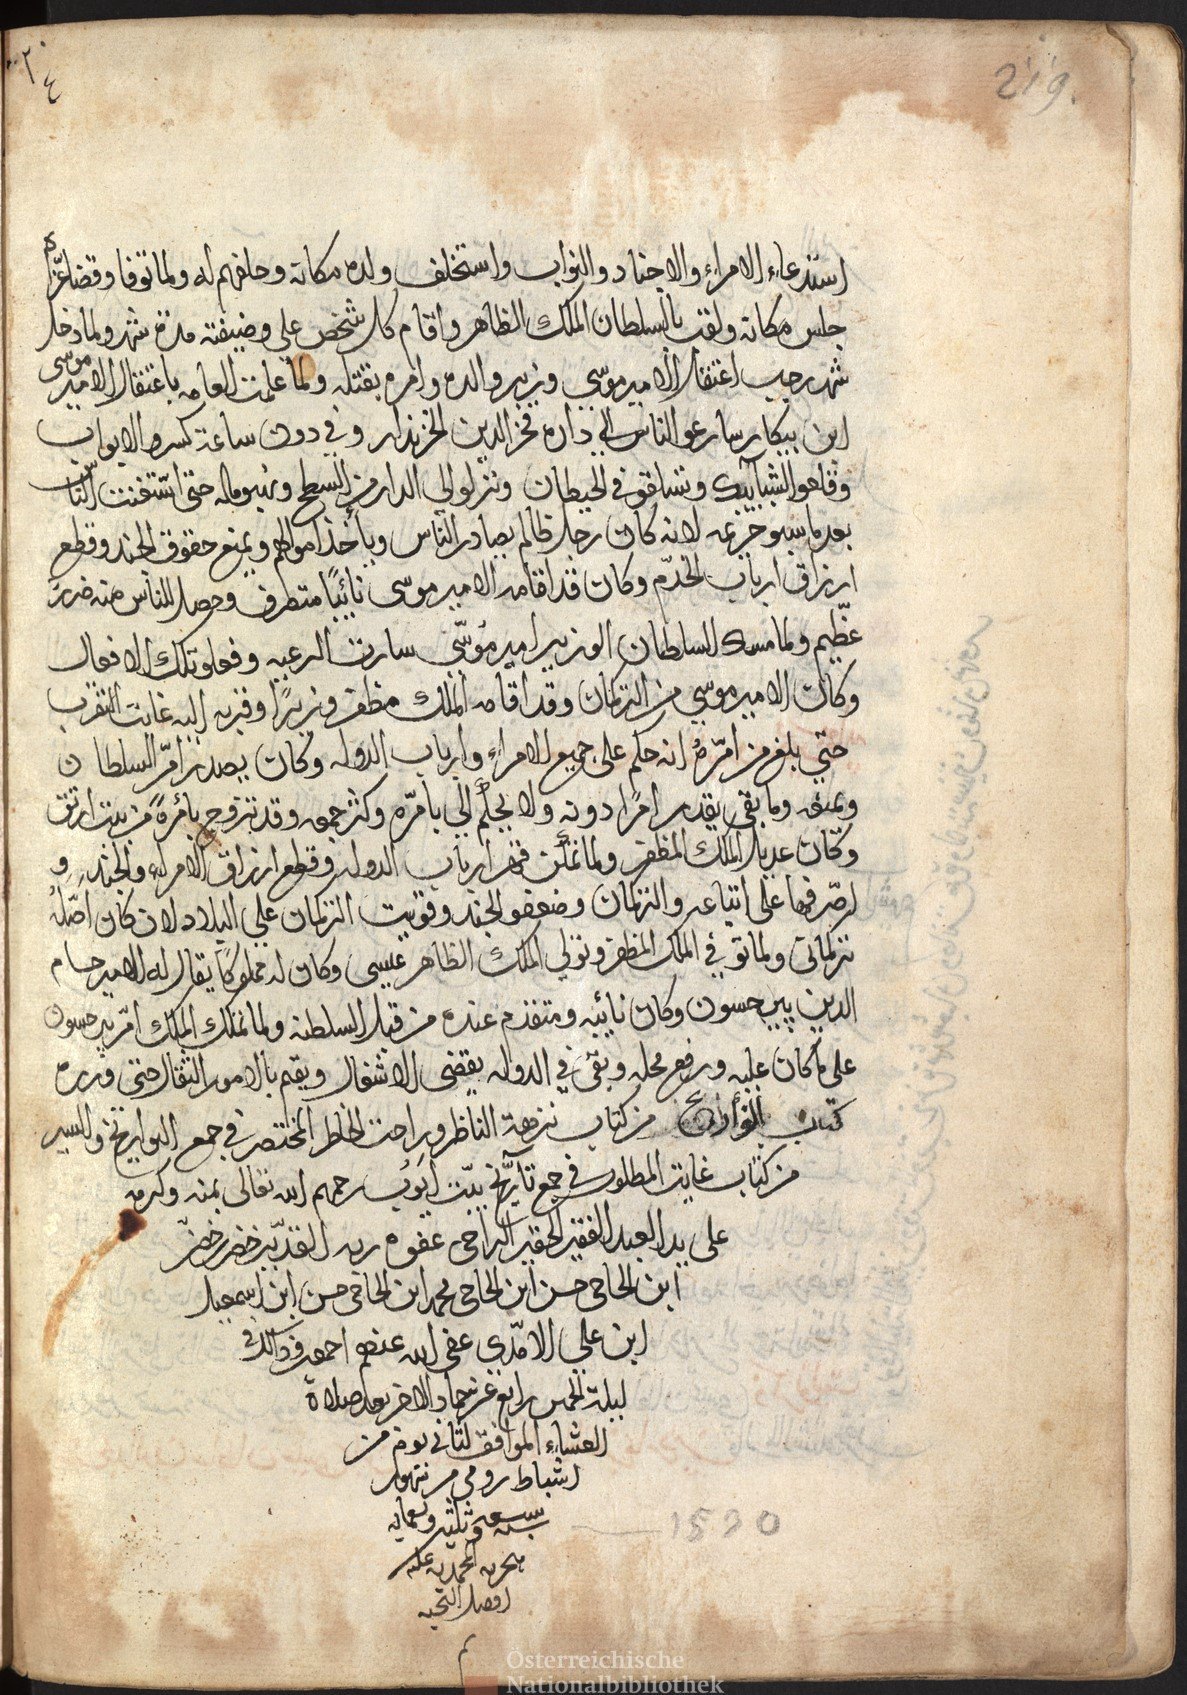 ٢٠٤
219.
استدعاء الامراء والاجناد والنواب واستخلف ولده مكانه وحلفهم له ولما توفا وقضا عزاه
جلس مكانه ولقب بالسلطان الملك الظاهر واقام كل شخص على وضيفته مدة شهر ولما دخل
شهر رجب اعتقل الامير موسى وزير والده وامره بقتله ولما علمت العامه باعتقال الامير موسى
ابن بيكار سارعو الناس الى داره فخر الدين الخزندار وفي دون ساعة كسرو الابواب
وقلعو الشبابيك وتسلقو في الحيطان ونزلو الى الدار من السطح ونهبو ماله حتى استغنت الناس
بعد ما سبو حريمه لانه كان رجل ظالم يصادر الناس ويأخذ اموالهم ويمنع حقوق الجند وقطع
ارزاق ارباب الخدم وكان قد اقامه الامير موسى نائبًا متطرف وحصل للناس منه ضررً
عظيم ولما مسك السلطان الوزير امير موسى سارت الرعيه وفعلو تلك الافعال
وكان الامير موسى من التركمان وقد اقامه الملك مظفر وزيرًا وقربه اليه غايت التقرب
حتى بلغ من امره انه حكم على جميع الامراء وارباب الدوله وكان يصدر امر السلطان
ويمنعه وما بقى يقدر امرًا دونه ولا يحكم الى بامره وكثر جمعه وقد تزوج بامرة من بيت ارتق
وكان عديل الملك المظفر ولما تمكن قهر ارباب الدوله وقطع ارزاق الامراء والجند و
لصرفها على اتباعه والتركمان وضعفو الجند وقويت التركمان على البلاد لان كان اصله
تركمانى ولما توفي الملك المظفر وتولى الملك الظاهر عيسى وكان له مملوكًا يقال له الامير حسام
الدين پير حسون وكان نائبه ومتقدم عنده من قبل السلطنه ولما تملك الملك امر پير حسون
على ما كان عليه ورفع محله وبقى في الدوله يقضى الاشغال ويقم بالامور الثقال حتى
كتاب من كتاب نزهة الناظر وراحت الخاطر المختصر في جمع التواريخ والسير
من كتاب غايت المطلوب في جمع تأريخ بيت ايوب رحمهم الله تعالى بمنه وكرمه
على يد العبد الفقير الحقير الراجى عفوه ربه القدير خضر بن خضر
ابن الحاجى حسن ابن الحاجى محمد ابن الحاجى حسن ابن اسمعيل
ابن على الامدى عفى الله عنهم اجمع وذالك في
ليلة الخميس رابع عشر جماد الاخر بعد صلاة
العشاء الموافق لثانى يوم من
اشباط رومى من شهور
سنة سبعه وثلثين وتسعمايه
هجريه المحمديه عليه
افضل التحيه
تم
1530
Österreichische
Nationalbibliothek